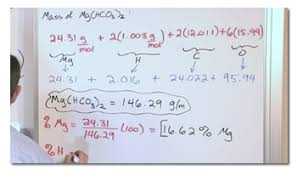 Mass of Mg(HCO₃)₂:
24.31 g/mol + 2(1.008 g/mol) + 2(12.011) + 6(15.99)
Mg H C O
24.31 + 2.016 + 24.022 + 95.94
Mg(HCO₃)₂ = 146.29 g/m
% Mg = 24.31/146.29 (100) = [16.62% Mg
% H =